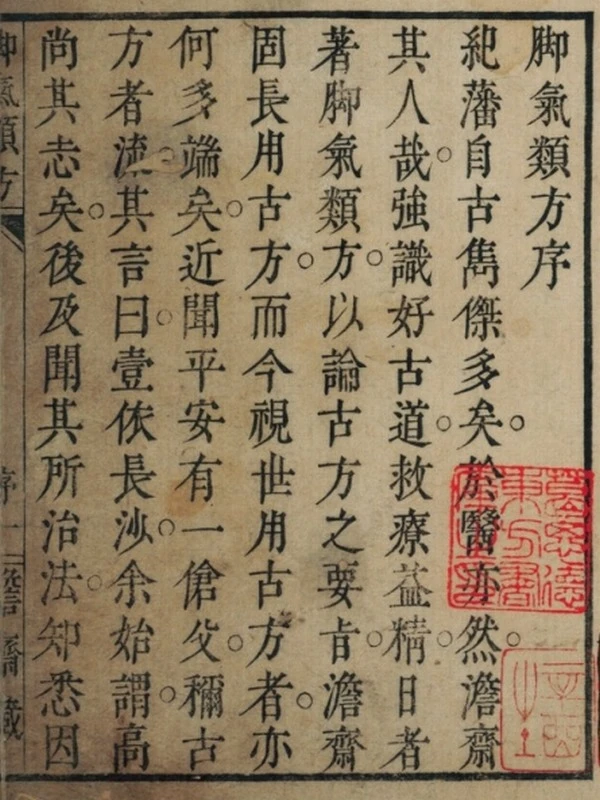 脚氣類方序
紀藩自古雋傑多矣。於醫亦然。澹齋
其人哉。強識好古道。救療益精。日者
著脚氣類方。以論古方之要旨。澹齋
固長用古方。而今視世用古方者。亦
何多端矣。近聞平安有一傖父。穪古
方者流。其言曰。壹依長沙。余始謂。高
尚其志矣。後及聞其所治法。知悉因
脚氣類方 序 一 齋藏
葛思德
東方書